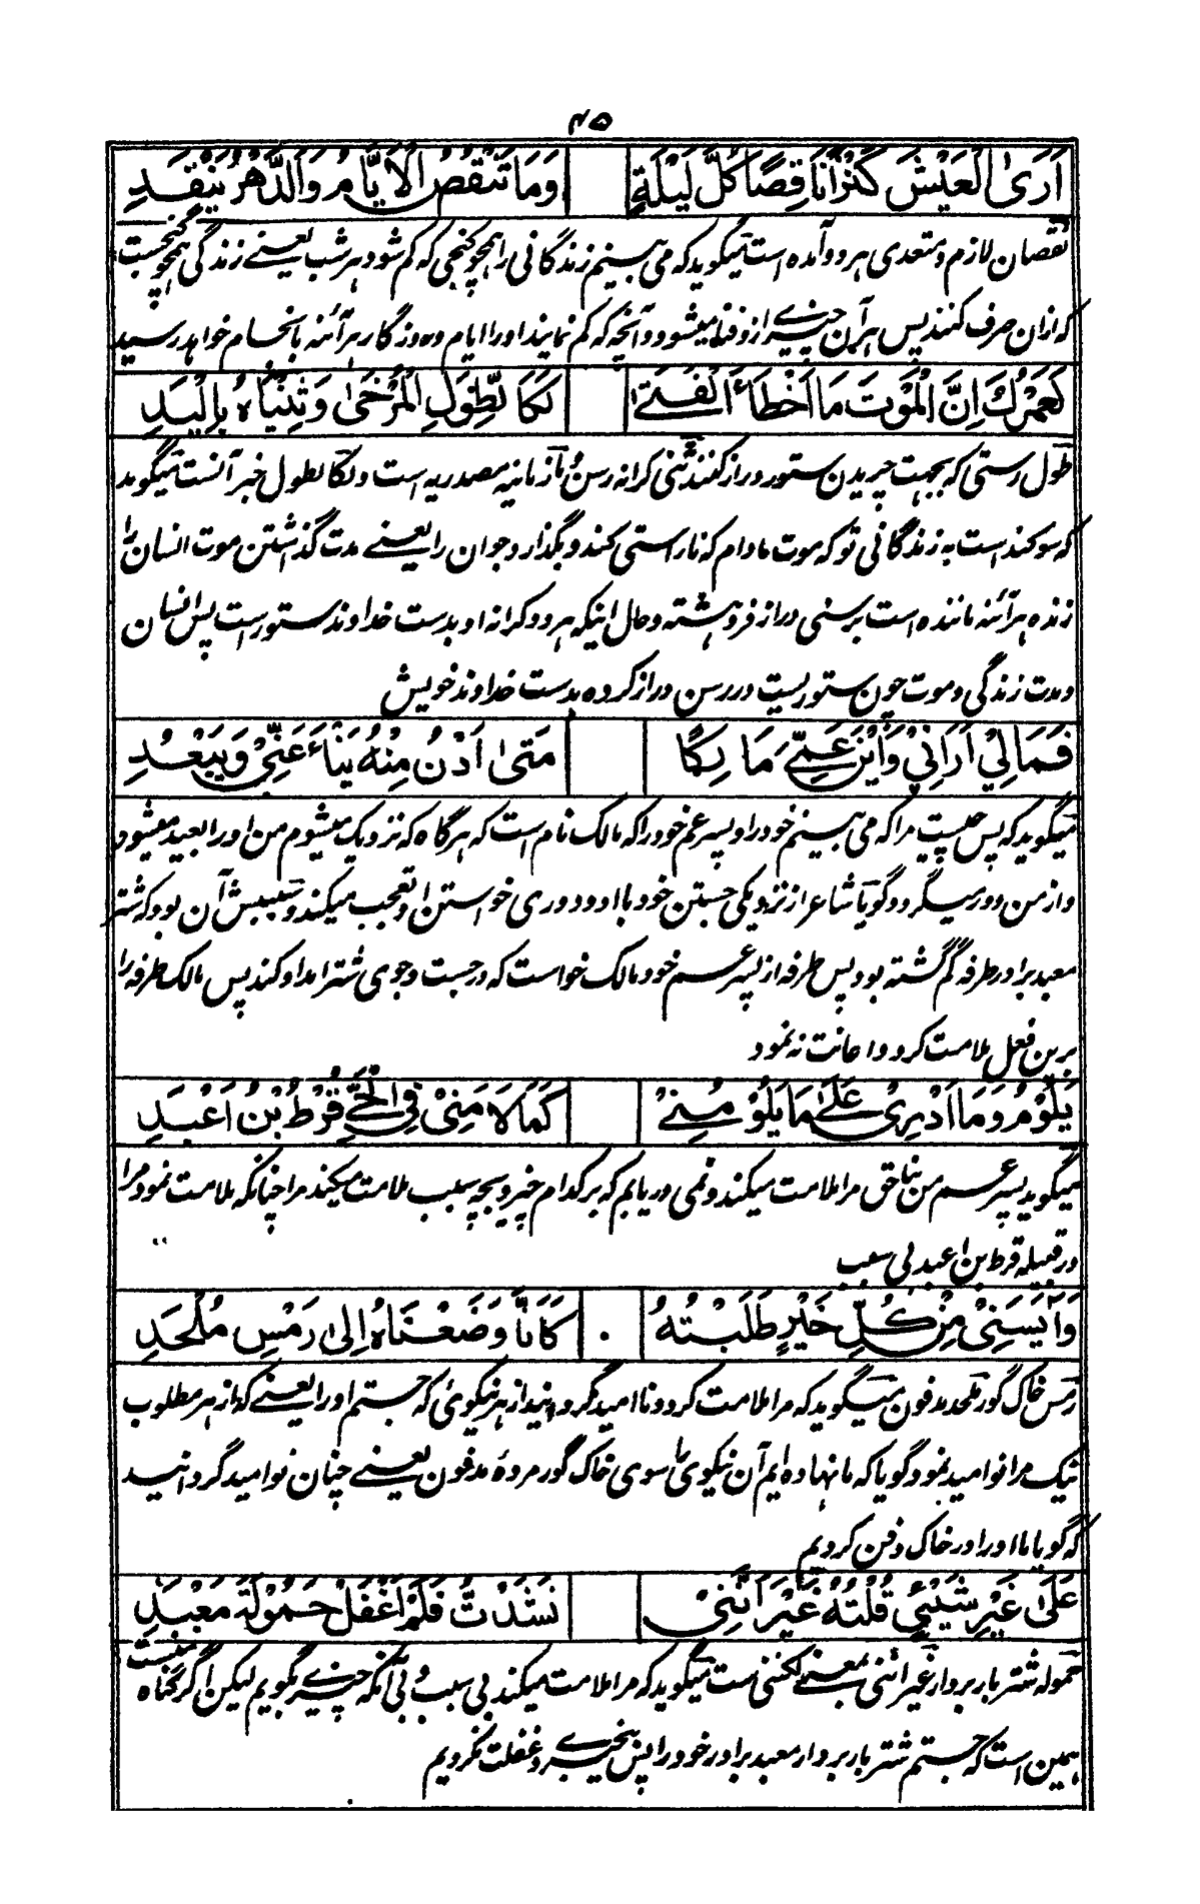 ۴۵
اَرَی الْعَیْشَ کَنْزًا نَاقِصًا کُلَّ لَیْلَةٍ وَمَا تَنْقُصُ الْاَیَّامُ وَالدَّهْرُ یَنْفَدِ
نقصان لازم و متعدی هر دو آمده است میگوید که می بینم زندگانی را همچو گنجی که کم شود هر شب یعنے زندگی همچو گنجیست
که ازان صرف کنند پس هر آن چیزے ازو فنا میشود و آنچه که کم نمایند او را ایام و روزگار هر آئنه بانجام خواهد رسید
لَعَمْرُكَ اِنَّ الْمَوْتَ مَا اَخْطَاَ الْفَتٰی لَکَا لطِّوَلِ الْمُرْخٰی وَثِنْیَاهُ بِالْیَدِ
طول رسنی که بجهت چریدن ستور دراز کنند ثنی کرانه رسن ما زمانیه مصدریه است و لکا لطول خبر آنست میگوید
که سوکند است به زندگانی تو که موت مادام که ناراستی کند و بگذارد جوان را یعنے مدت گذاشتن موت انسان را
زنده هر آئنه ماننده است برسنی دراز فروهشته و حال اینکه هر دو کرانه او بدست خداوند ستور است پس انسان
و مدت زندگی و موت چون ستوریست در رسن دراز کرده بدست خداوند خویش
فَمَا لِیْ اَرَانِیْ وَابْنَ عَمِّیْ مَا لِکًا مَتٰی اَدْنُ مِنْهُ یَنْاَ عَنِّیْ وَیَبْعُدِ
میگوید که پس چیست مرا که می بینم خود را و پسر عم خود را که مالک نام است که هرگاه که نزدیک میشوم من او را بعید میشود
و از من دوری میگیرد و گویا شاعر از نزدیکی جستن خود با او و دوری خواستن او تعجب میکند و سببش آن بود که شتر
معبد برادر طرفه گم گشته بود پس طرفه از پسر عم خود مالک خواست که در جست و جوی شتر امداد کند پس مالک طرفه را
برین فعل ملامت کرد و اعانت نه نمود
یَلُوْمُ وَمَا اَدْرِیْ عَلٰی مَا یَلُوْمُنِیْ کَمَا لَامَنِیْ فِی الْحَیِّ قُرْطُ بْنُ اَعْبَدِ
میگوید پسر عم من بناحق مرا ملامت میکند و نمی دریابم که بر کدام خیر و بچه سبب ملامت میکند مرا چنانکه ملامت نمود مرا
در قبیله قرط بن اعبد بی سبب
وَاَیْاَسَنِیْ مِنْ کُلِّ خَیْرٍ طَلَبْتُهُ کَاَنَّا وَضَعْنَاهُ اِلٰی رَمْسِ مُلْحَدِ
رمس خاک گور ملحد مدفون میگوید که مرا ملامت کرد و نا امید گردانید از هر نیکوئی که جستم او را یعنے که از هر مطلوب
نیک مرا نوامید نمود گویا که ما نهاده ایم آن نیکوی را سوی خاک گور مرده مدفون یعنے چنان نوامید گردانید
که گویا ما او را در خاک دفن کردیم
عَلٰی غَیْرِ شَیْئٍ قُلْتُهُ غَیْرَ اَنَّنِیْ نَشَدْتُ فَلَمْ اَغْفَلْ حَمُوْلَةَ مَعْبَدِ
حموله شتر بار بردار غیر اننی بمعنے لکننی است میگوید که مرا ملامت میکند بی سبب و بی آنکه چیزے بگویم لیکن اگر گناه هست
همین است که جستم شتر بار بردار معبد برادر خود را پس بیخبرے و غفلت نکردیم